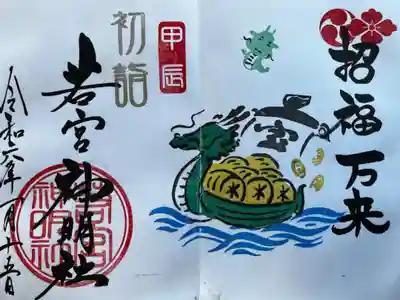 招福万来
宝
米
米
甲辰
初詣
若宮神明社
令和六年一月十五日